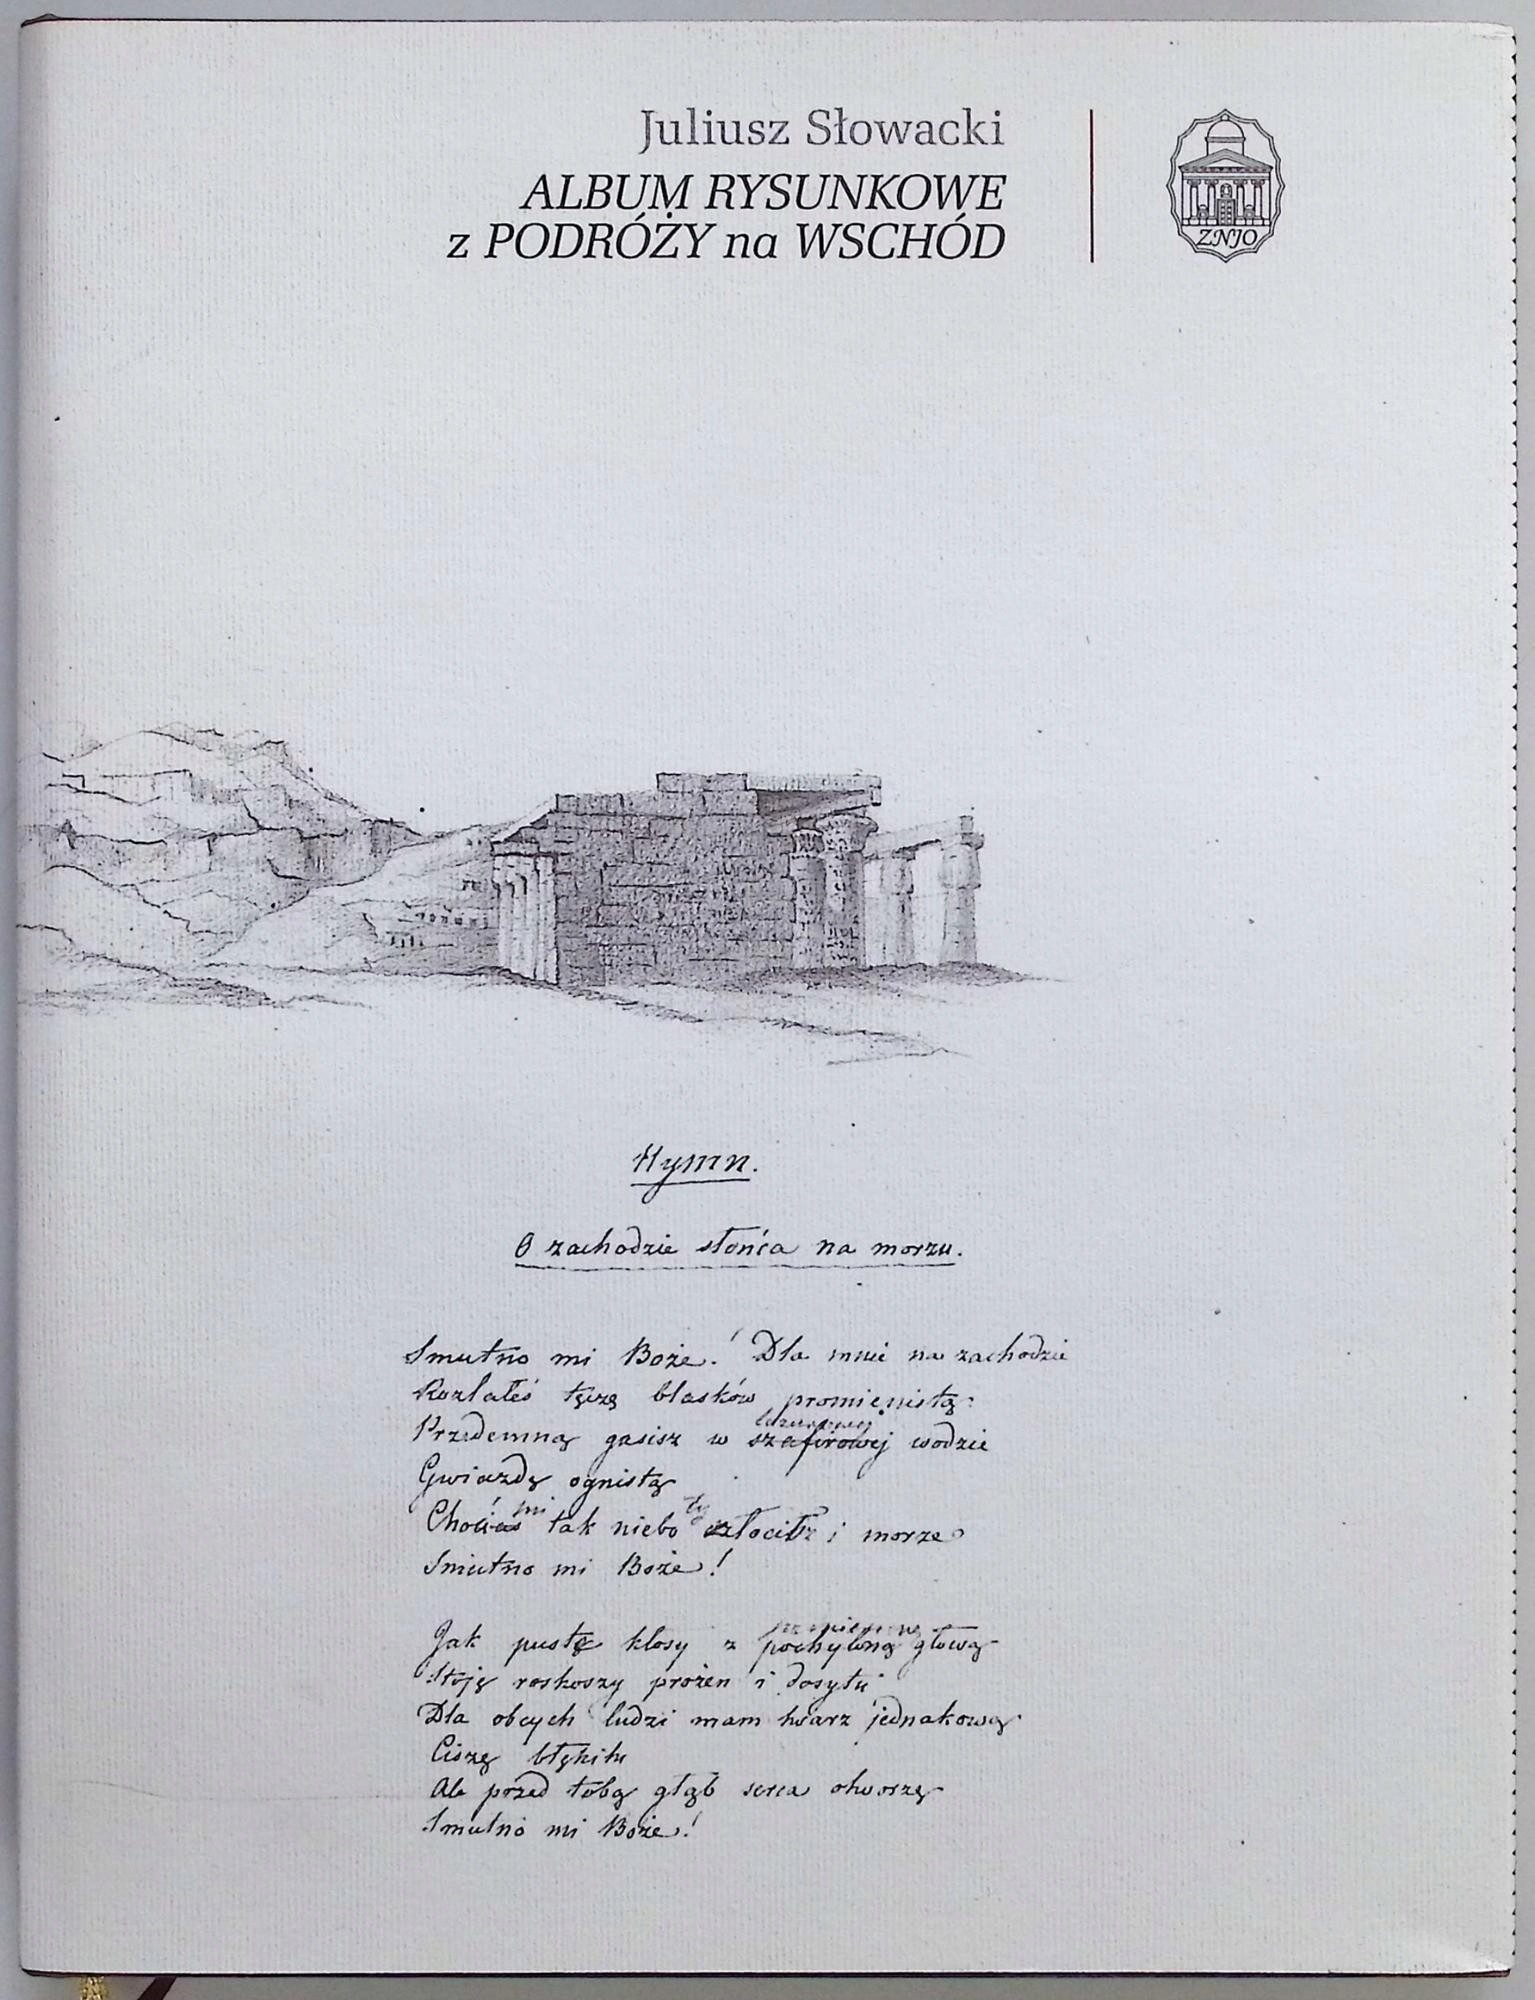 Juliusz Słowacki
ALBUM RYSUNKOWE
z PODRÓŻY na WSCHÓD
ZNJO
Hymn.
O zachodzie słońca na morzu.
Smutno mi Boże! Dla mnie na zachodzie
Rozlałeś tęczę blasków promienistą
lazurowej
Przedemną gasisz w szafirowej wodzie
Gwiazdę ognistą
mi ty
Chociaż tak niebo złocisz i morze
Smutno mi Boże!
Jak puste kłosy z pochyloną głową
Stoję roskoszy prożen i dosytu
Dla obcych ludzi mam twarz jednakową
Ciszę błękitu
Ale przed tobą głąb serca otworzę
Smutno mi Boże!